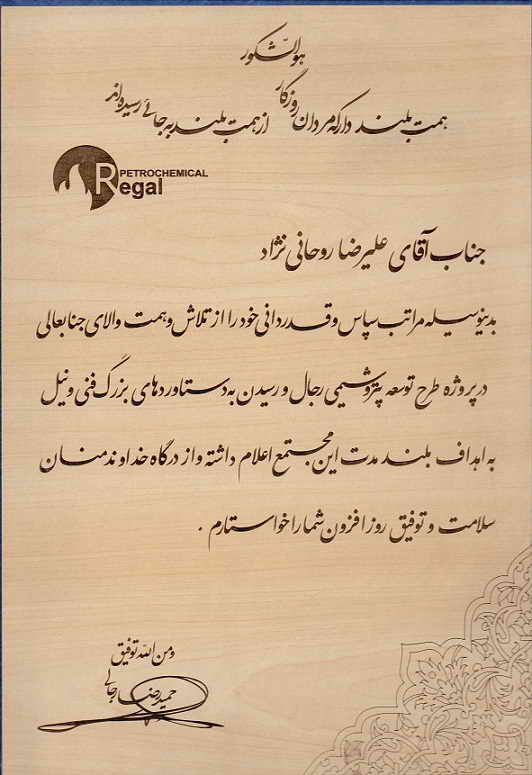 هوالشکور
همت بلند دار که مردان روزگار از همت بلند به جائی رسیده‌اند
PETROCHEMICAL
Regal
جناب آقای علیرضا روحانی نژاد
بدینوسیله مراتب سپاس و قدردانی خود را از تلاش و همت والای جنابعالی
در پروژه طرح توسعه پتروشیمی رجال و رسیدن به دستاوردهای بزرگ فنی و نیل
به اهداف بلند مدت این مجتمع اعلام داشته و از درگاه خداوند منان
سلامت و توفیق روز افزون شما را خواستارم .
ومن الله توفیق
حمیدرضا رجالی